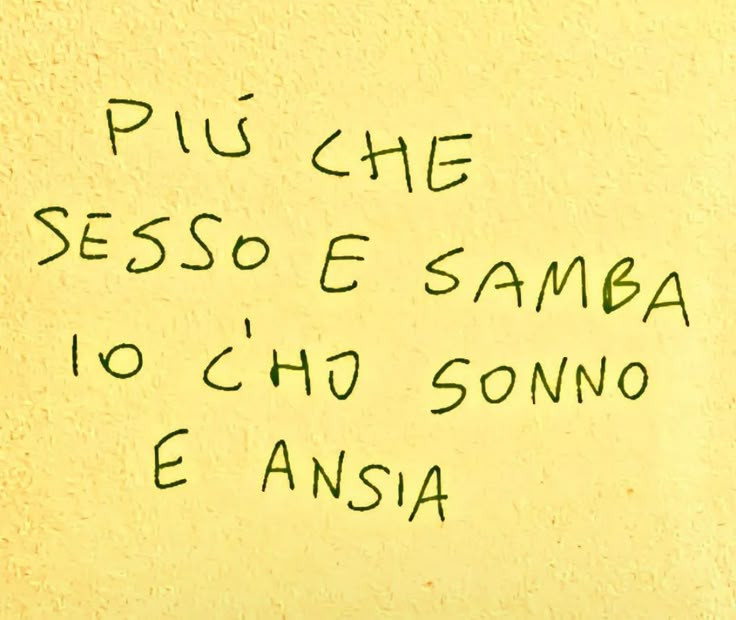 PIÚ CHE
SESSO E SAMBA
IO C'HO SONNO
E ANSIA